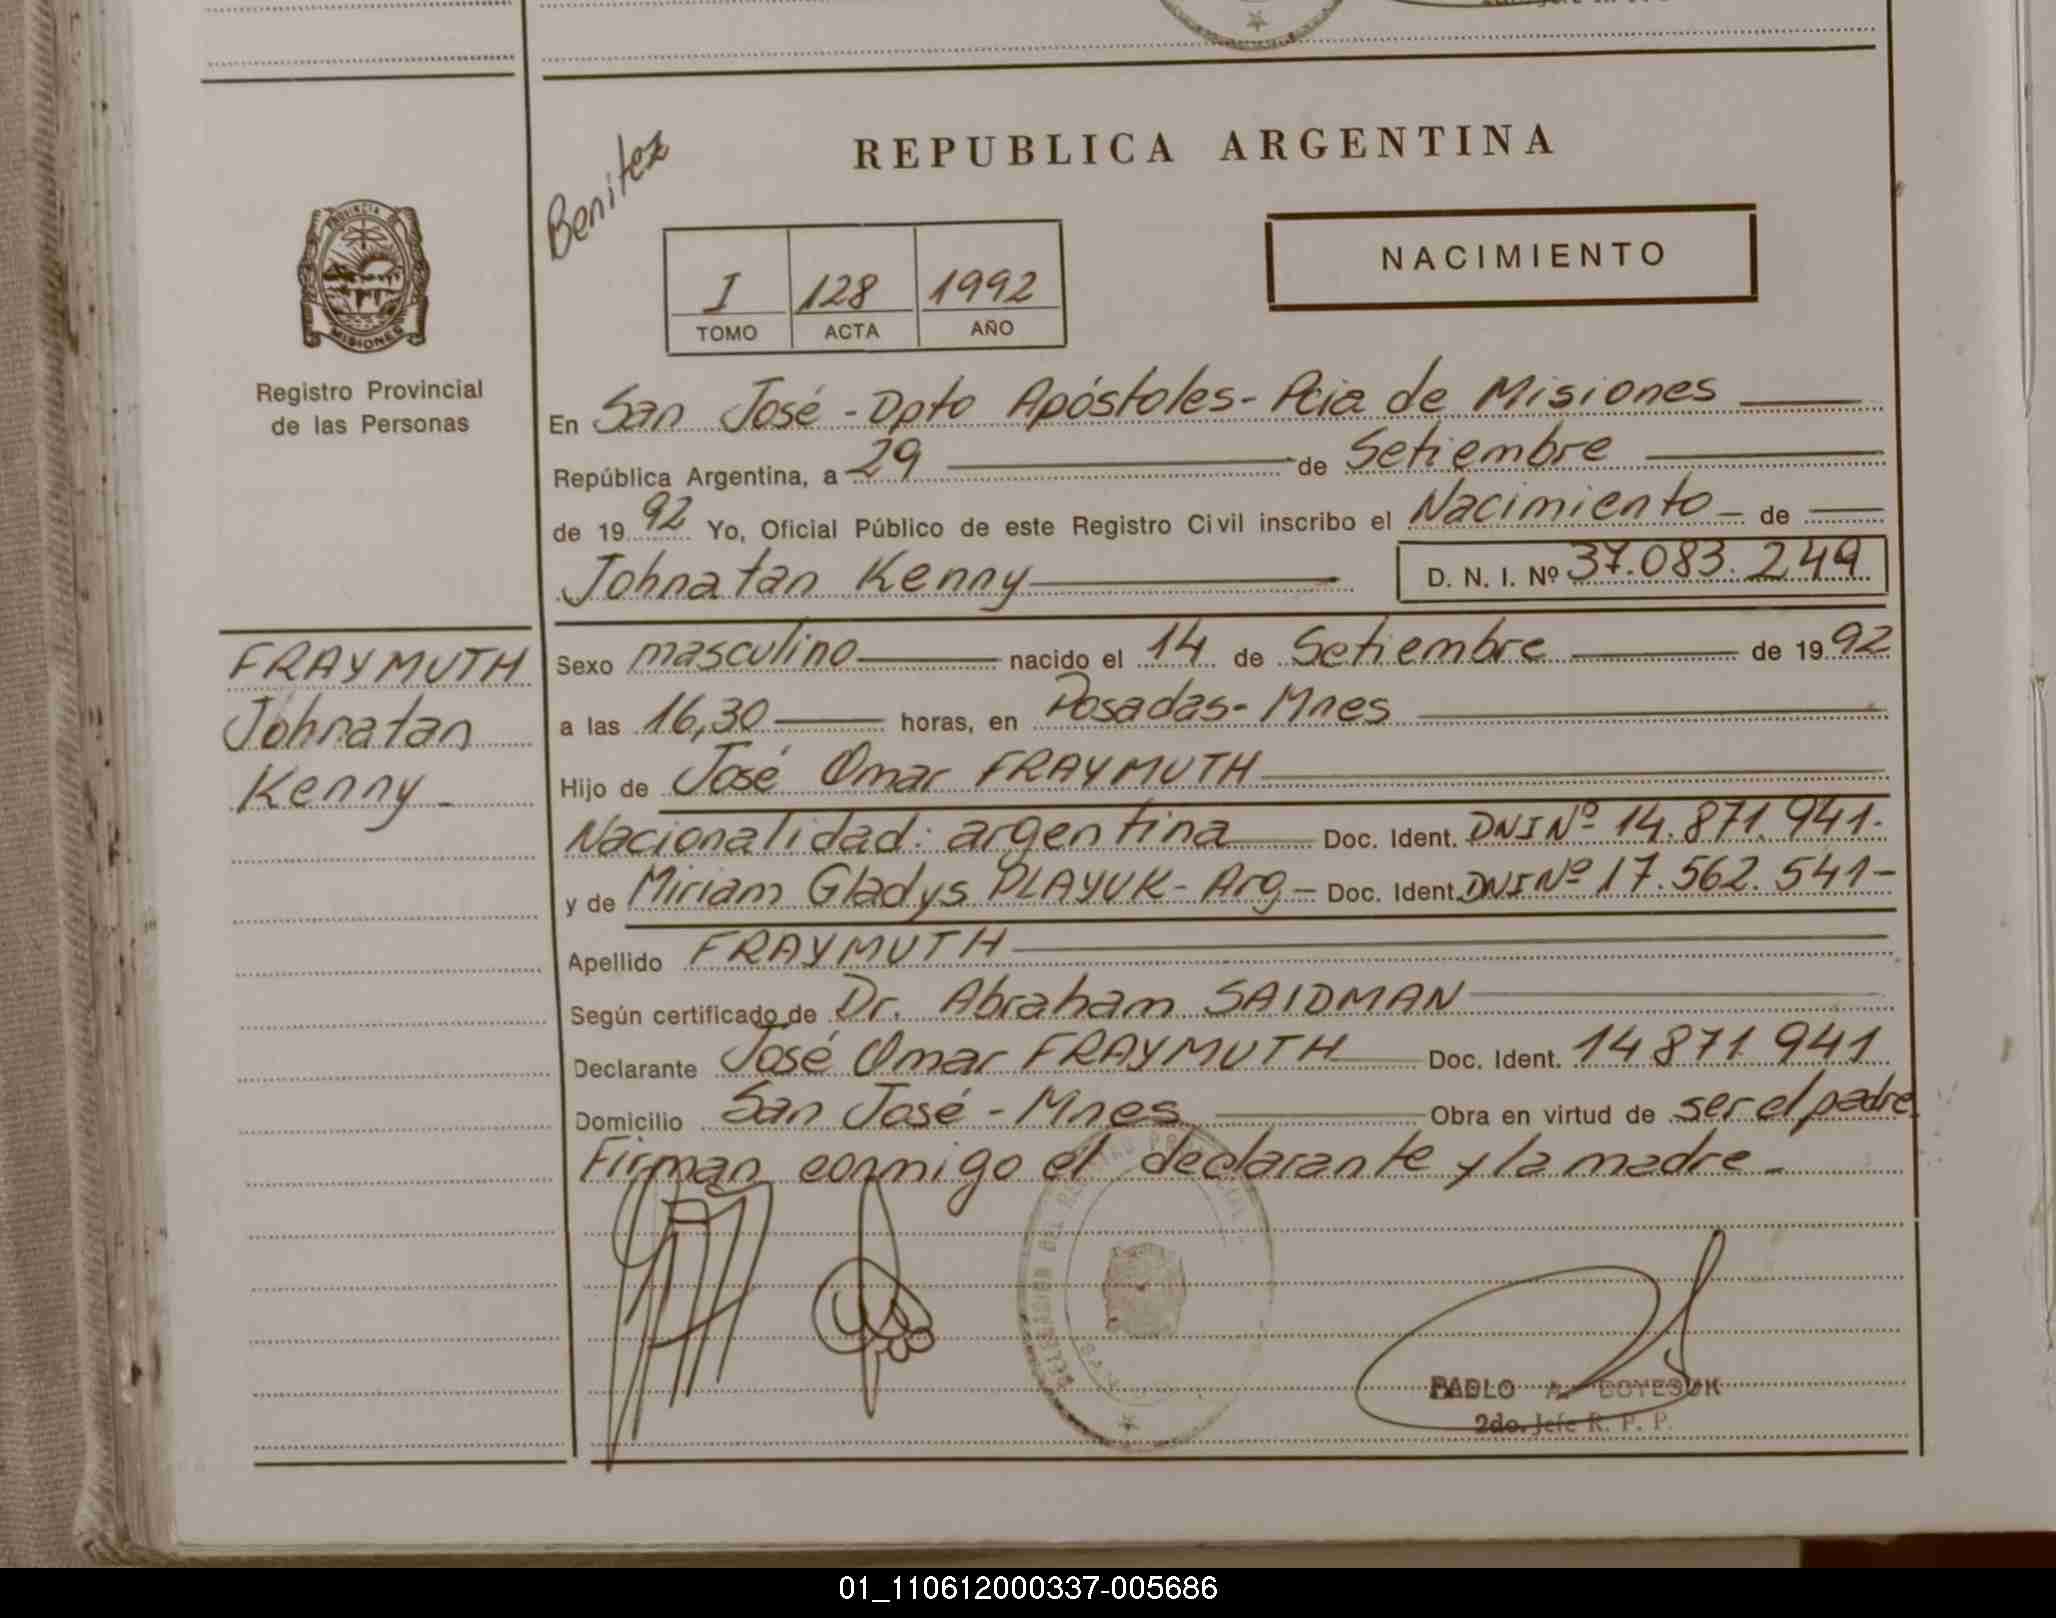 REPUBLICA ARGENTINA
Benitez
NACIMIENTO
I 128 1992
TOMO ACTA AÑO
PROVINCIA DE
MISIONES
Registro Provincial
de las Personas
En San José - Dpto Apóstoles - Pcia de Misiones
República Argentina, a 29 de Setiembre
de 1992 Yo, Oficial Público de este Registro Civil inscribo el Nacimiento - de
Johnatan Kenny D. N. I. Nº 37.083.249
FRAYMUTH
Johnatan
Kenny -
Sexo masculino nacido el 14 de Setiembre de 1992
a las 16,30 horas, en Posadas - Mnes
Hijo de José Omar FRAYMUTH
Nacionalidad: argentina Doc. Ident. DNI Nº 14.871.941.-
y de Miriam Gladys PLAYUK - Arg - Doc. Ident. DNI Nº 17.562.541 -
Apellido FRAYMUTH
Según certificado de Dr. Abraham SAIDMAN
Declarante José Omar FRAYMUTH Doc. Ident. 14871941
Domicilio San José - Mnes Obra en virtud de ser el padre
Firman conmigo el declarante y la madre -
PABLO A.
2do. Jefe R. P. P.
01_110612000337-005686